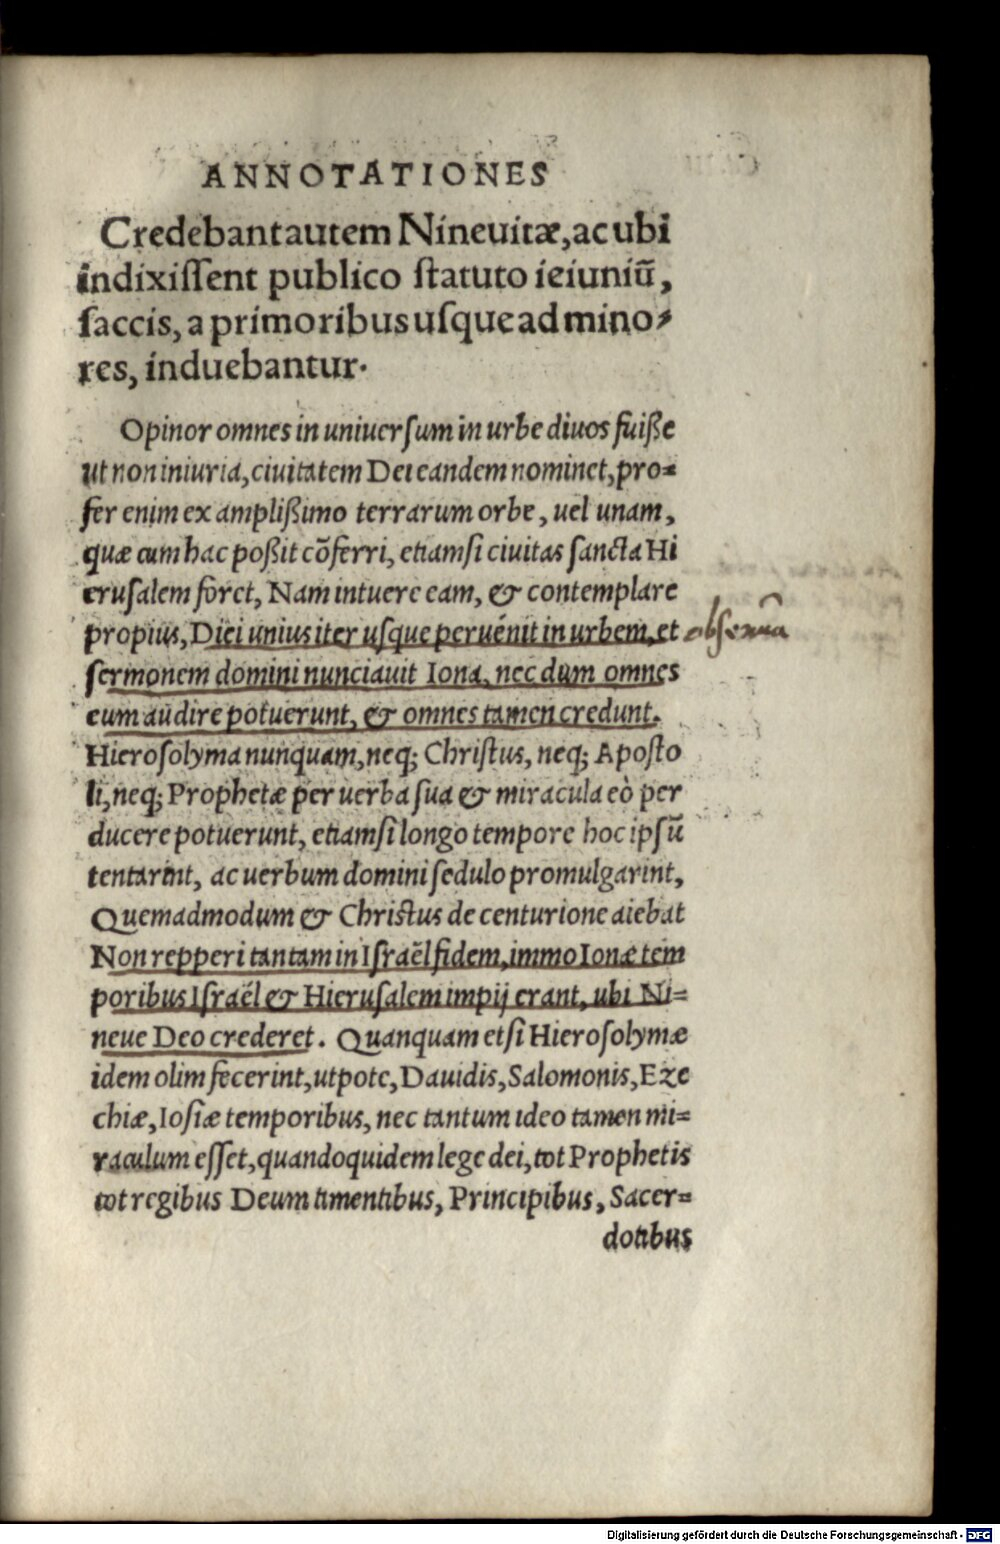 ANNOTATIONES
Credebant autem Nineuitæ, ac ubi
indixiſſent publico ſtatuto ieiuniū,
ſaccis, a primoribus uſque ad mino-
res, induebantur.
Opinor omnes in uniuerſum in urbe diuos fuiße
ut non iniuria, ciuitatem Dei eandem nominet, pro-
fer enim ex amplißimo terrarum orbe, uel unam,
quæ cum hac poßit cōferri, etiamſi ciuitas ſancta Hi
eruſalem foret, Nam intuere eam, & contemplare
propius, Diei unius iter uſque peruēnit in urbem, et
ſermonem domini nunciauit Iona, nec dum omnes
eum audire potuerunt, & omnes tamen credunt.
Hieroſolyma nunquam, neq; Chriſtus, neq; Apoſto
li, neq; Prophetæ per uerba ſua & miracula eò per
ducere potuerunt, etiamſi longo tempore hoc ipſū
tentarint, ac uerbum domini ſedulo promulgarint,
Quemadmodum & Chriſtus de centurione aiebat
Non repperi tantam in Iſraēl fidem, immo Ionæ tem
poribus Iſraēl & Hieruſalem impij erant, ubi Ni-
neue Deo crederet. Quanquam etſi Hieroſolymæ
idem olim fecerint, utpote, Dauidis, Salomonis, Eze
chiæ, Ioſiæ temporibus, nec tantum ideo tamen mi-
raculum eſſet, quandoquidem lege dei, tot Prophetis
tot regibus Deum timentibus, Principibus, Sacer-
dotibus
Digitalisierung gefördert durch die Deutsche Forschungsgemeinschaft - DFG